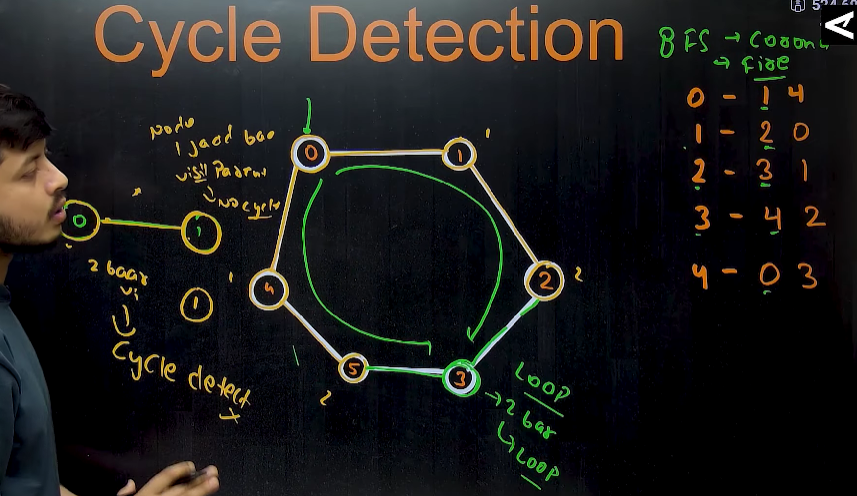 Cycle Detection
BFS → Corona
→ Fire
0 - 1 4
1 - 2 0
2 - 3 1
3 - 4 2
4 - 0 3
Node
1 jaad baa
visit Padrha
↓ No cycle
0
1
2 baar
vi
1
Cycle detect
x
0
1
1
2
2
3
5
2
4
1
1
LOOP
→ 2 bar
↳ LOOP